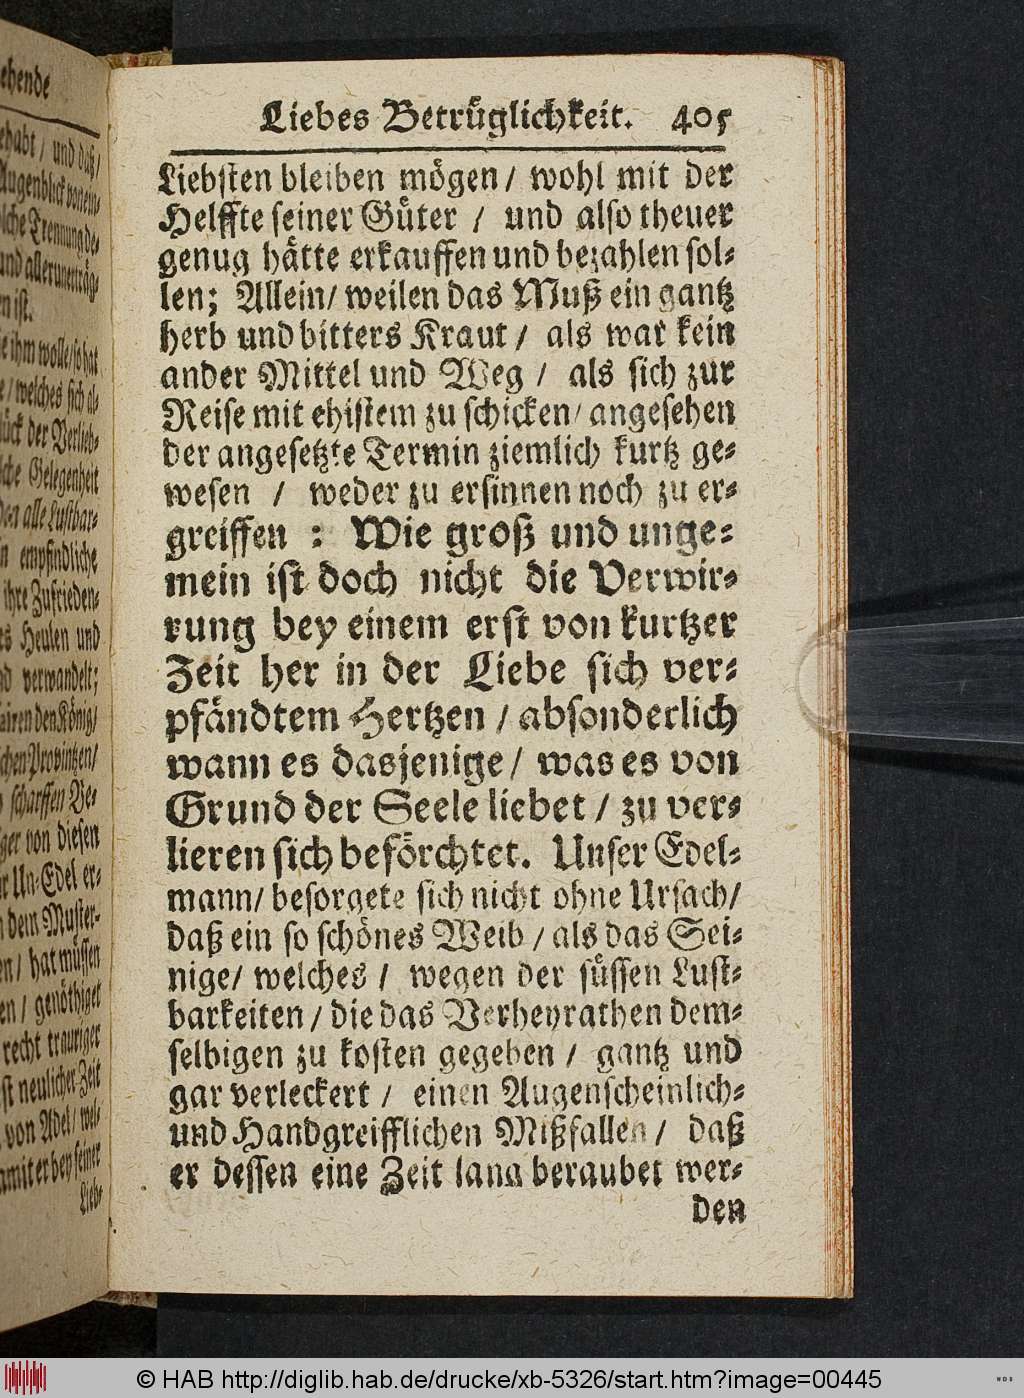 Liebes Betrüglichkeit. 405
Liebsten bleiben mögen / wohl mit der
Helffte seiner Güter / und also theuer
genug hätte erkauffen und bezahlen sol-
len; Allein / weilen das Muß ein gantz
herb und bitters Kraut / als war kein
ander Mittel und Weg / als sich zur
Reise mit ehistem zu schicken / angesehen
der angesetzte Termin ziemlich kurtz ge-
wesen / weder zu ersinnen noch zu er-
greiffen : Wie groß und unge-
mein ist doch nicht die Verwir-
rung bey einem erst von kurtzer
Zeit her in der Liebe sich ver-
pfändtem Hertzen / absonderlich
wann es dasjenige / was es von
Grund der Seele liebet / zu ver-
lieren sich beförchtet. Unser Edel-
mann / besorgete sich nicht ohne Ursach /
daß ein so schönes Weib / als das Sei-
nige / welches / wegen der süssen Lust-
barkeiten / die das Verheyrathen dem-
selbigen zu kosten gegeben / gantz und
gar verleckert / einen Augenscheinlich-
und Handgreifflichen Mißfallen / daß
er dessen eine Zeit lang beraubet wer-
den
ehende
ehabt / und daß /
Augenblick von ein-
lche Trennung de-
und allerunerträg-
n ist.
ie ihm wolle / so hat
e / welches sich al-
ück der Verlieb-
che Gelegenheit
den alle Lustbar-
n empfindliche
ihre Zufrieden-
es Heulen und
nd verwandelt;
airen den König /
chen Provintzen /
scharffen Be-
ger von diesen
r Un-Edel er-
n dem Muster-
en / hat müssen
en / genöthiget
recht trauriger
st neulicher Zeit
von Adel / wel-
amit er bey seiner
Lieb-
© HAB http://diglib.hab.de/drucke/xb-5326/start.htm?image=00445